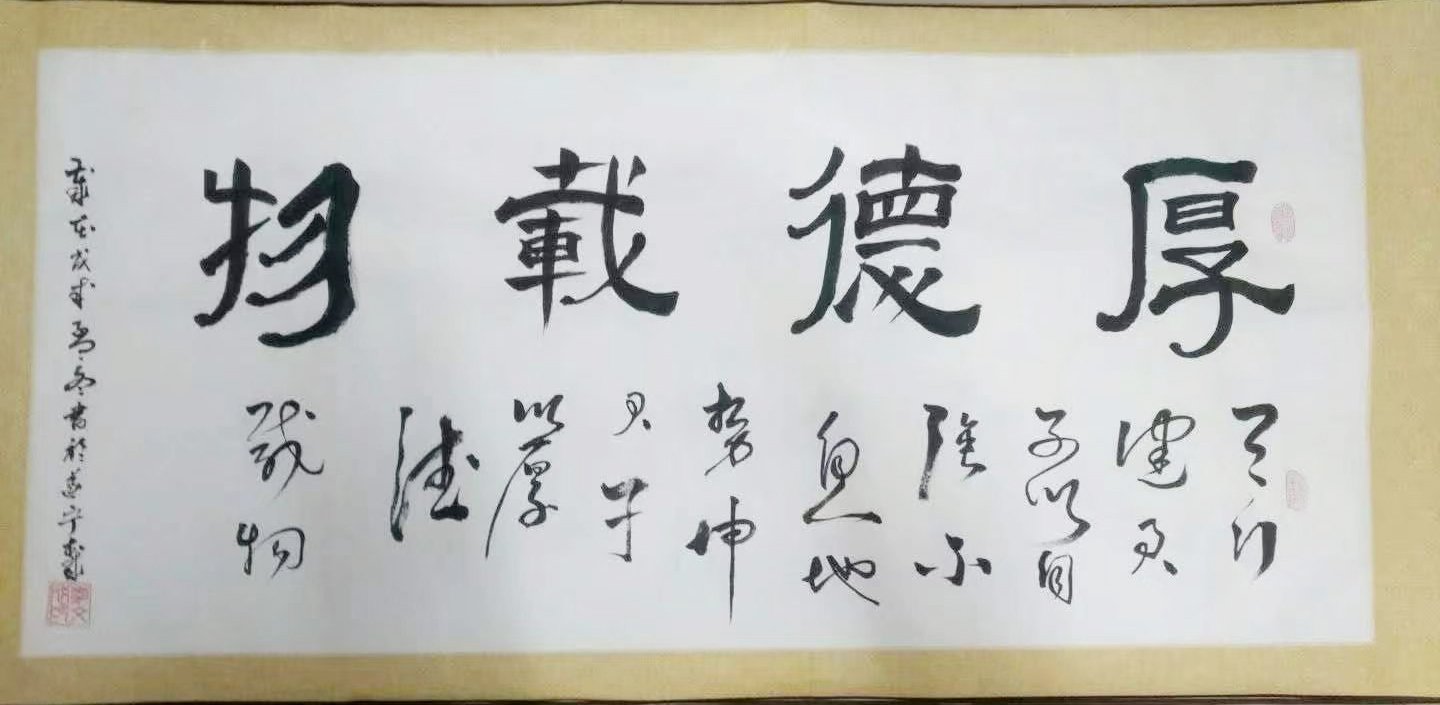 厚德載物
天行
健君
子以自
强不
息地
勢坤
君子
以厚
德
載物
歲在戊戌孟冬書於